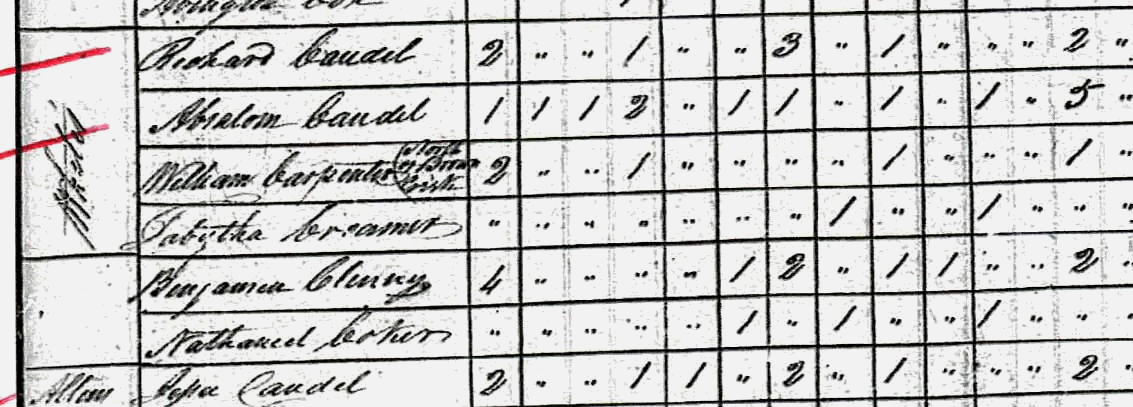 Richard Caudel 2 " " 1 " " 3 " 1 " " " 2 "
Absalom Caudel 1 1 1 2 " 1 1 " 1 " 1 " 5 "
William Carpenter (North of Brown Creek 2 " " 1 " " " " 1 " " " 1 "
Tabytha Creamer " " " " " " " 1 " " 1 " " "
Benjamin 4 " " " " 1 2 " 1 1 " " 2 "
Nathaniel Coker " " " " " 1 " 1 " " 1 " " "
Caudel 2 " " 1 1 " 2 " 1 " " " 2 "